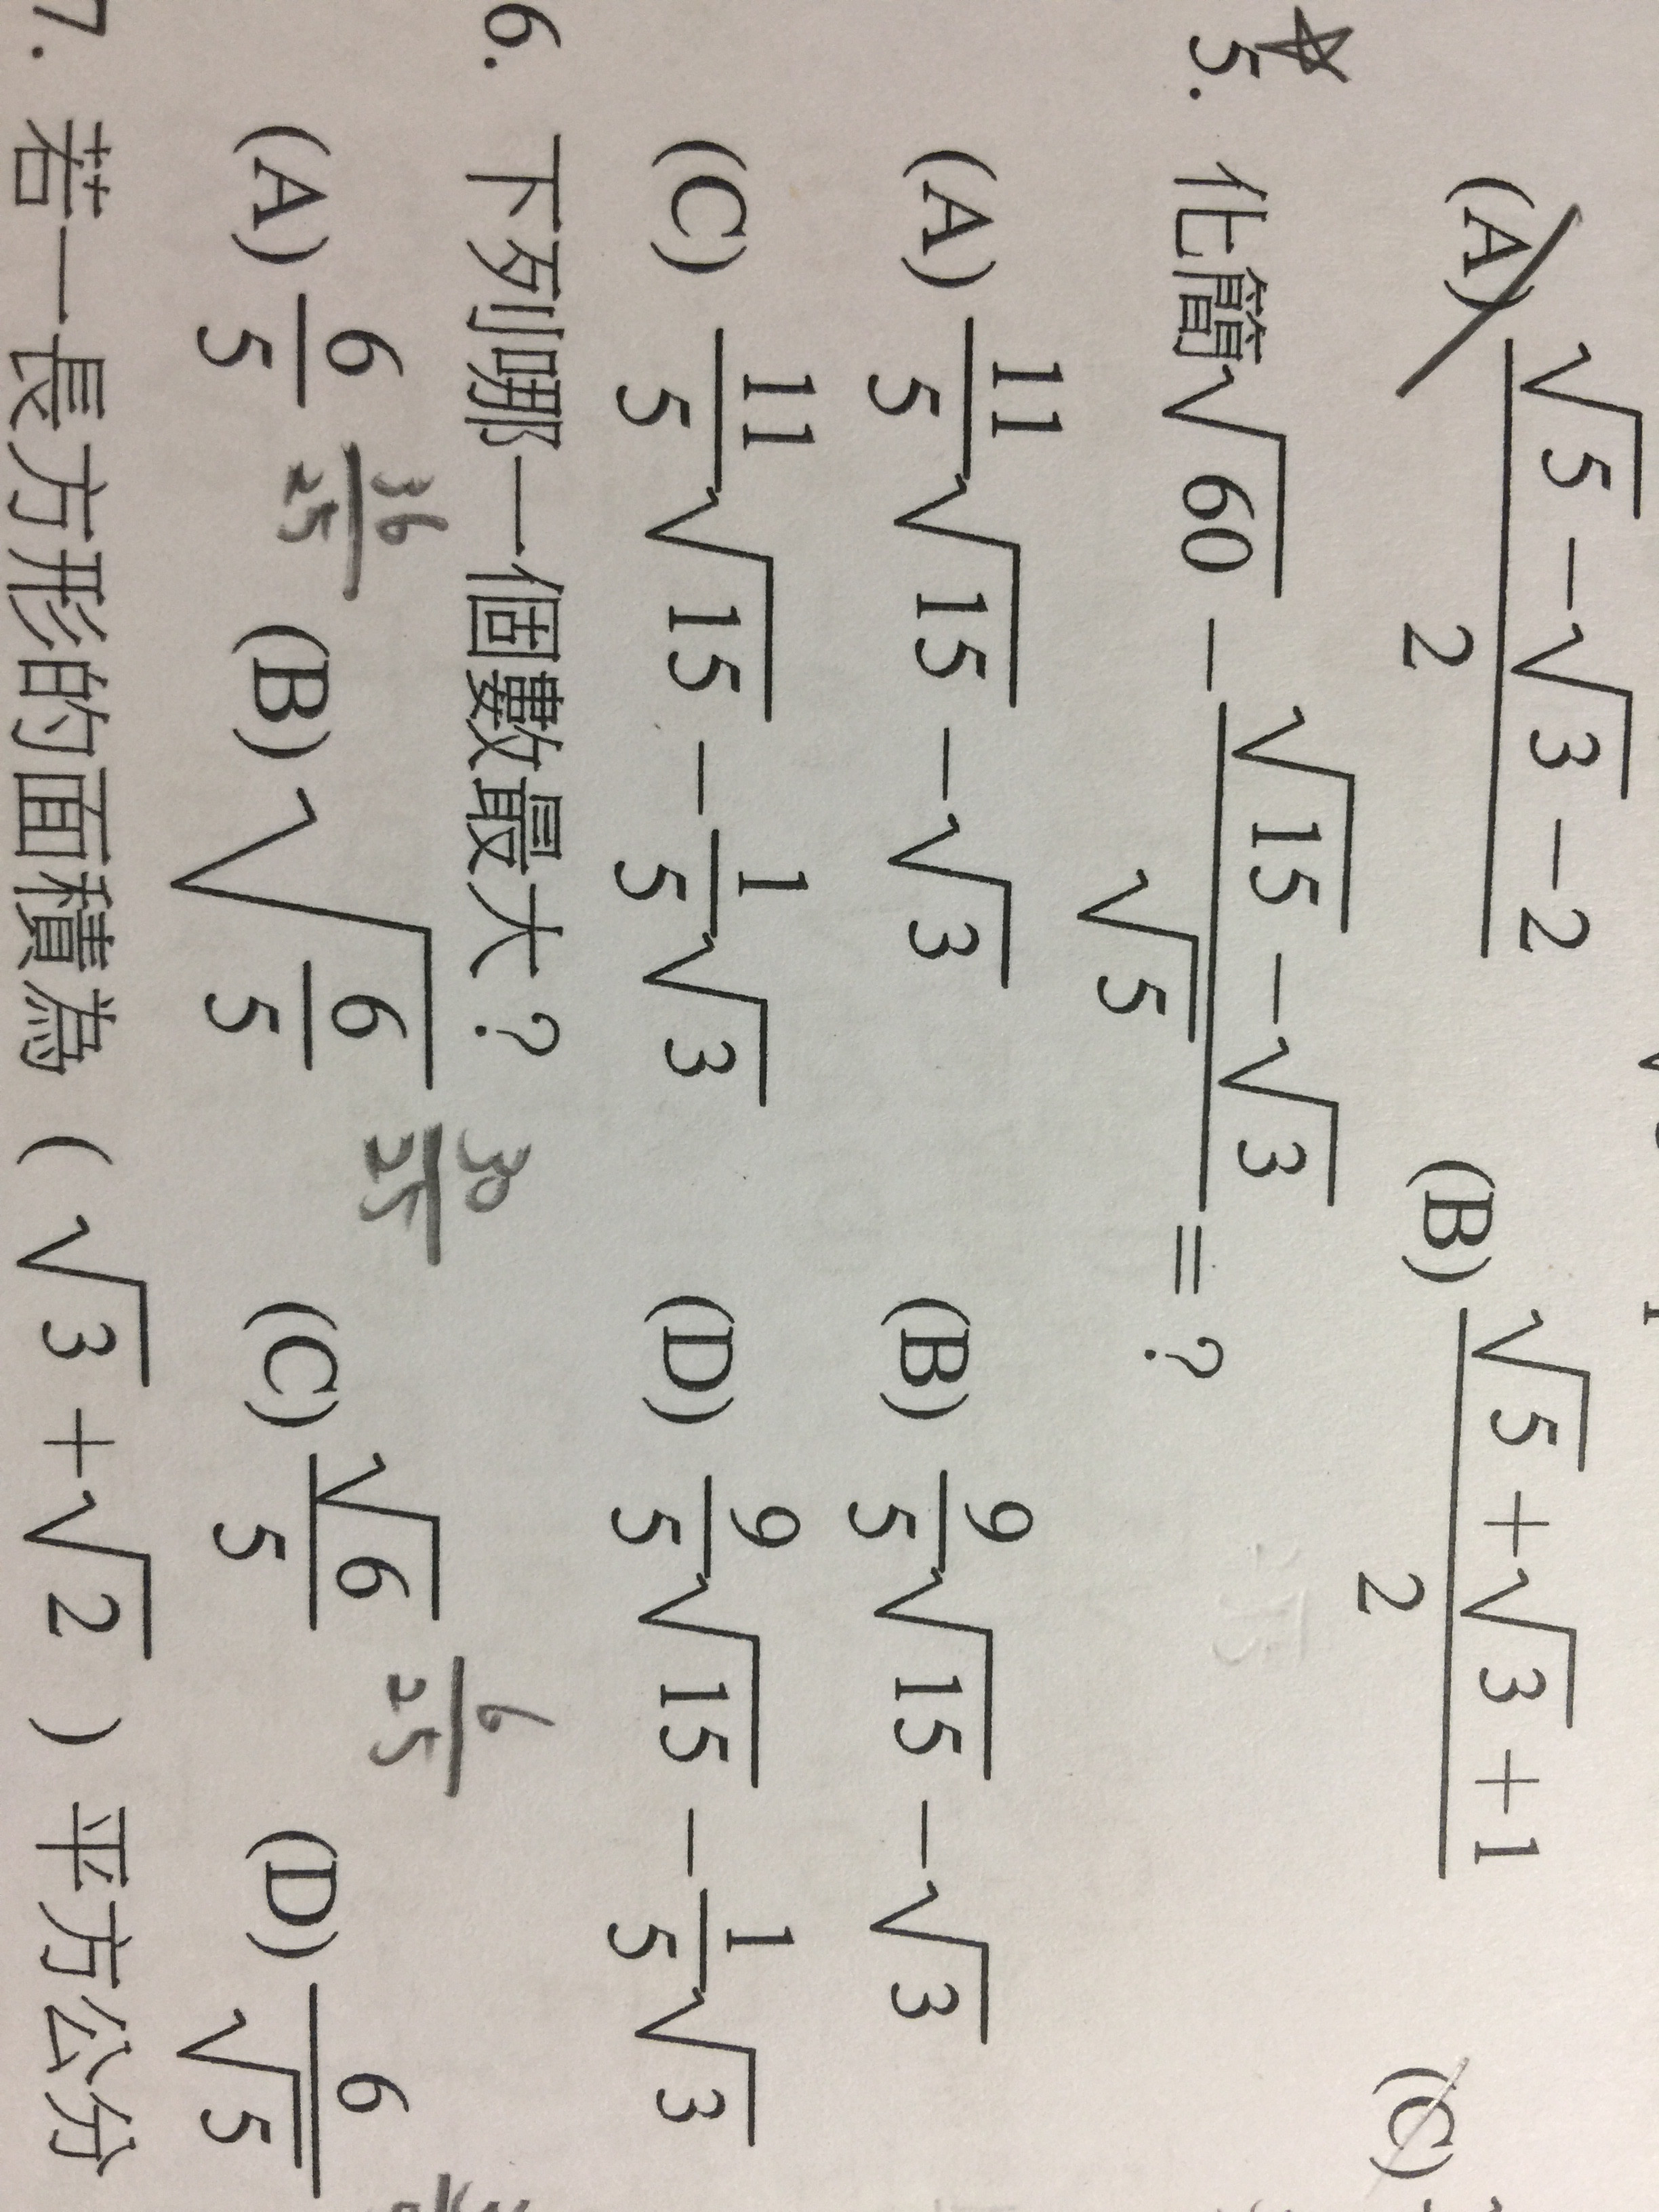 (A) (√5−√3−2)/2 (B) (√5+√3+1)/2 (C)
☆5. 化簡√60 − (√15−√3)/√5 = ?
(A) 11/5√15−√3 (B) 9/5√15−√3
(C) 11/5√15−1/5√3 (D) 9/5√15−1/5√3
6. 下列哪一個數最大?
(A) 6/5 36/25 (B) √(6/5) 30/25 (C) √6/5 6/25 (D) 6/√5
7. 若一長方形的面積為(√3+√2)平方公分